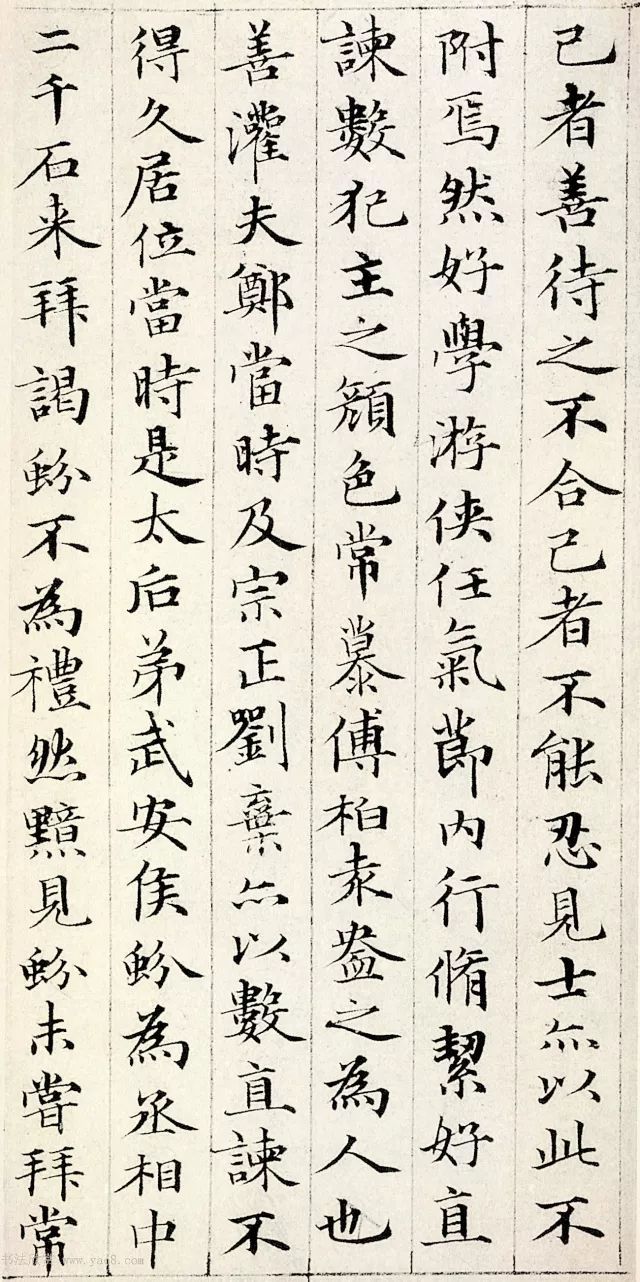 己者善待之不合己者不能忍見士亦以此不
附焉然好學游俠任氣節内行脩絜好直
諫數犯主之顏色常慕傅柏袁盎之為人也
善灌夫鄭當時及宗正劉棄亦以數直諫不
得久居位當時是太后弟武安侯蚡為丞相中
二千石来拜謁蚡不為禮然黯見蚡未嘗拜常
www.yac8.com